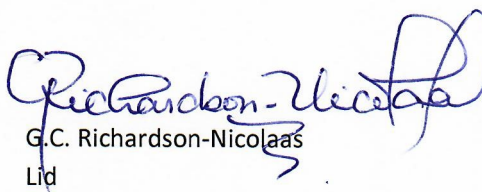 CRichardson-Nicolaas
G.C. Richardson-Nicolaas
Lid